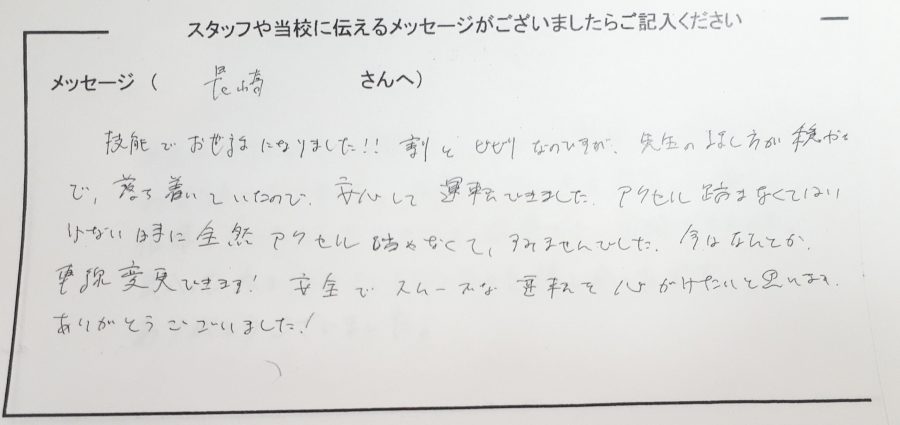 スタッフや当校に伝えるメッセージがございましたらご記入ください
メッセージ（ 長崎 さんへ）
技能でお世話になりました!! 割とビビりなのですが、先生の話し方が穏やか
で、落ち着いていたので、安心して運転できました。アクセル踏まなくてはい
けない時に全然アクセル踏めなくて、すみませんでした。今はなんとか、
車線変更できます! 安全でスムーズな運転を心がけたいと思います。
ありがとうございました!